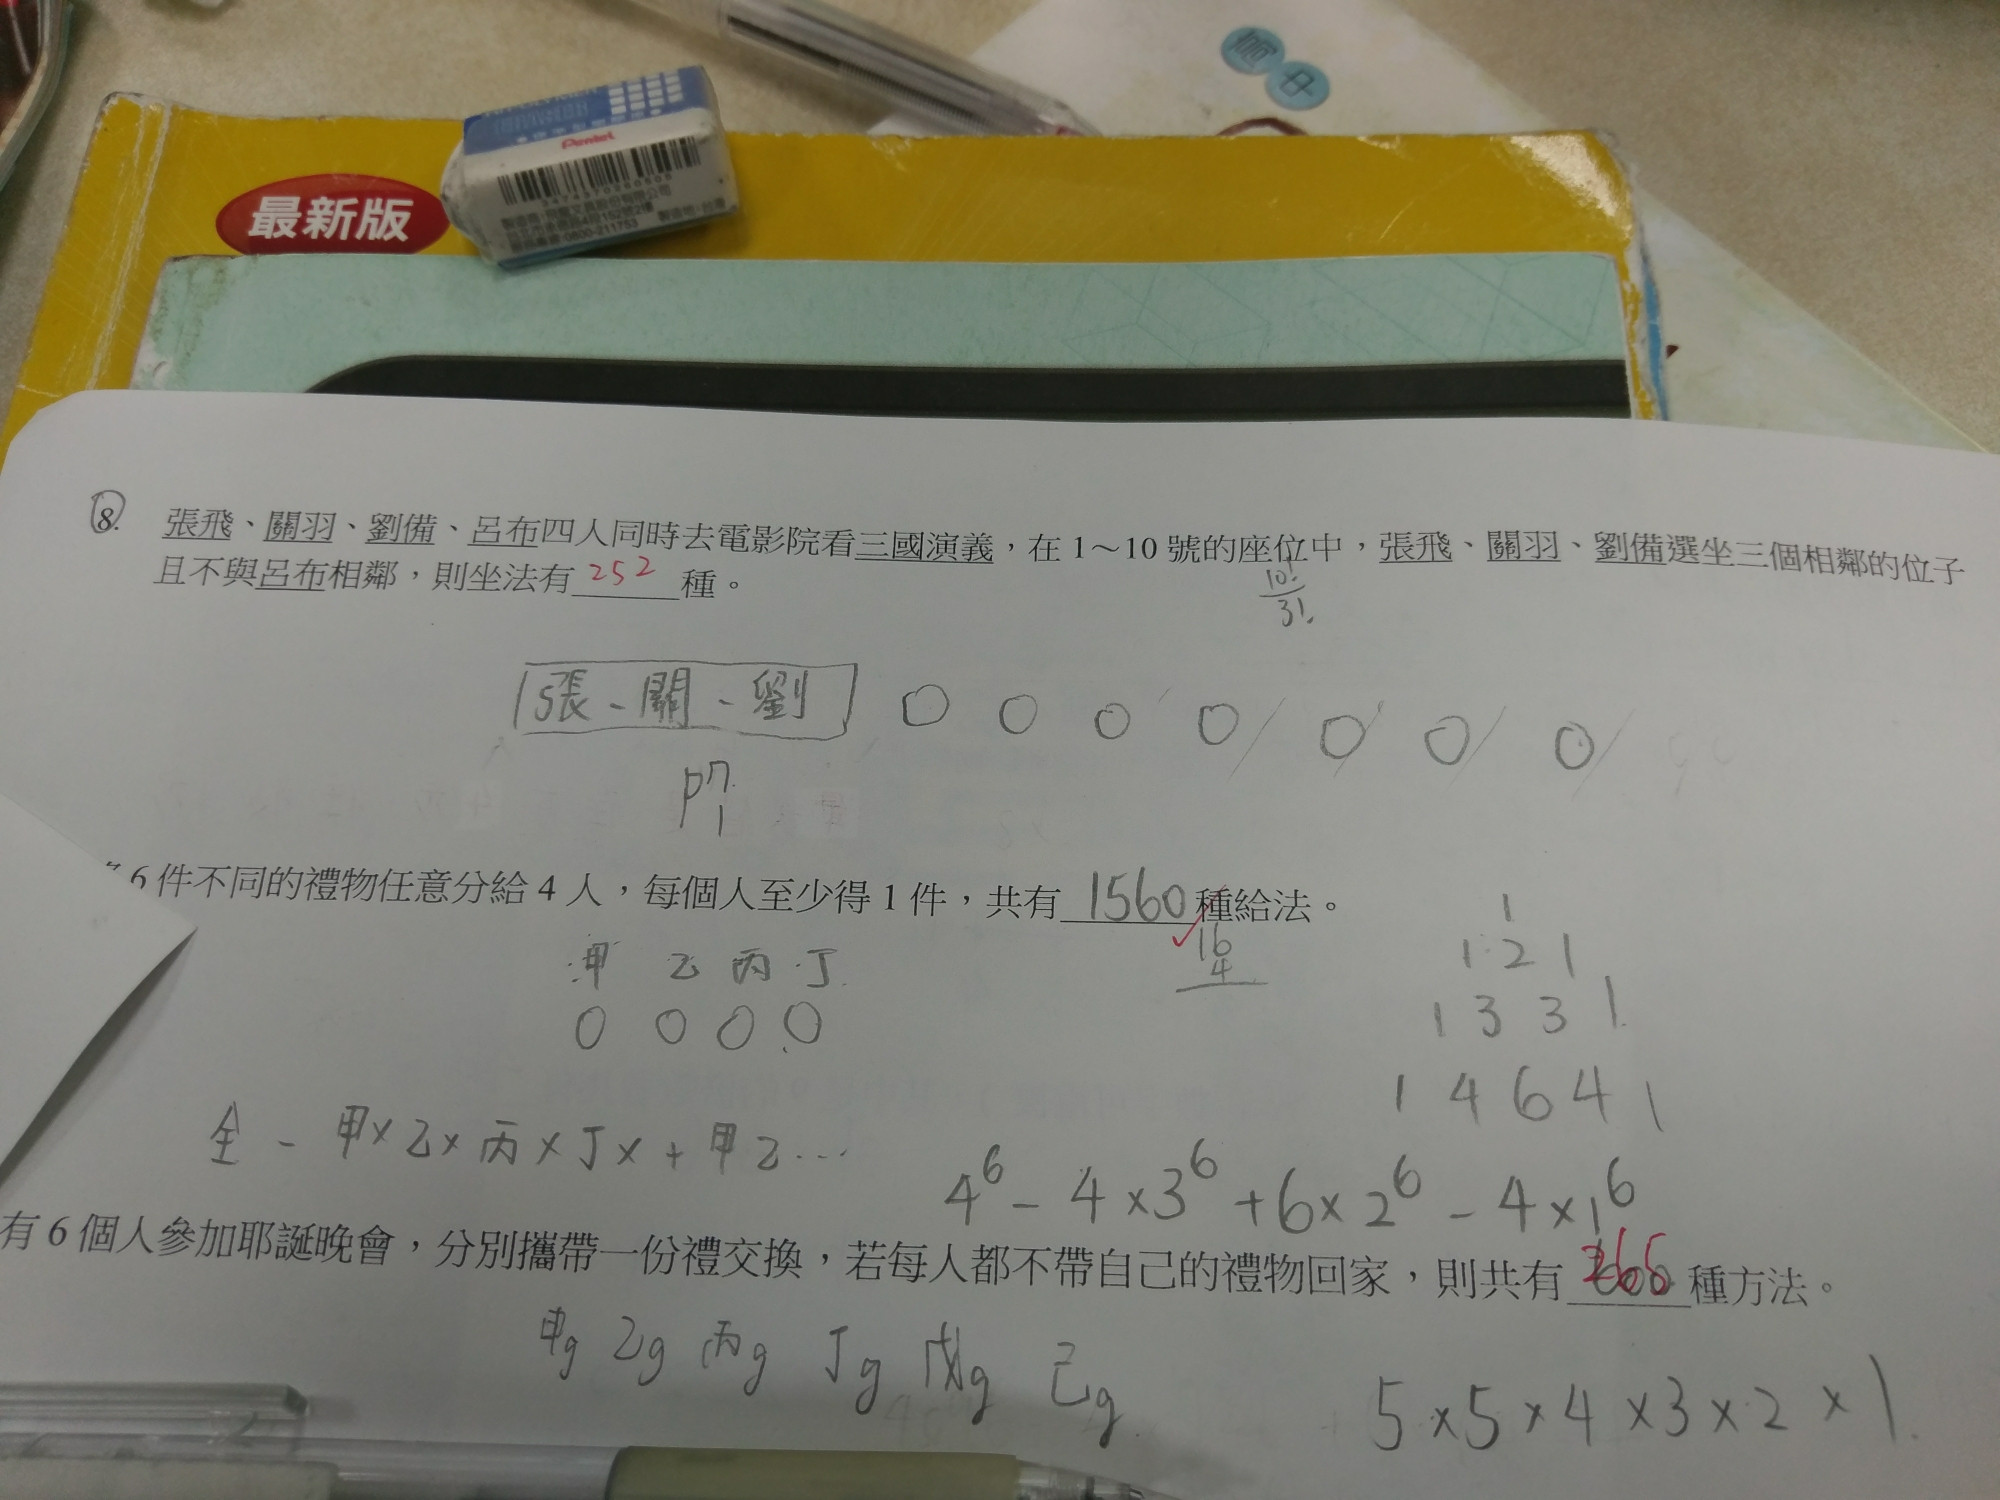 最新版
Pentel
8. 張飛、關羽、劉備、呂布四人同時去電影院看三國演義，在 1～10 號的座位中，張飛、關羽、劉備選坐三個相鄰的位子
且不與呂布相鄰，則坐法有 252 種。
10!
3!
張、關、劉 0 0 0 0 0 0 0
P 7 1
6 件不同的禮物任意分給 4 人，每個人至少得 1 件，共有 1560 種給法。
16
4
甲 乙 丙 丁
0 0 0 0
1
1 2 1
1 3 3 1
1 4 6 4 1
全 - 甲x 乙x 丙x 丁x + 甲乙...
4⁶ - 4×3⁶ + 6×2⁶ - 4×1⁶
有 6 個人參加耶誕晚會，分別攜帶一份禮交換，若每人都不帶自己的禮物回家，則共有 265 種方法。
甲g 乙g 丙g 丁g 戊g 己g
5×5×4×3×2×1